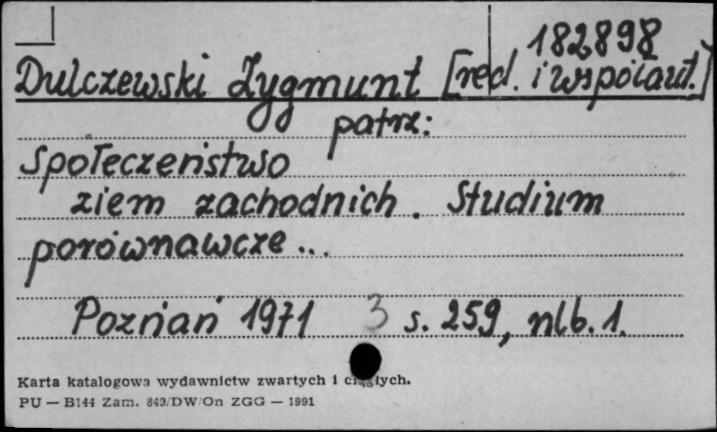 182898
Dulczewski Zygmunt [red. i współaut.]
patrz:
Społeczeństwo
ziem zachodnich. Studium
porównawcze...
Poznań 1971 3 s. 259, nlb. 1.
Karta katalogowa wydawnictw zwartych i ciągłych.
PU — B144 Zam. 843/DW/On ZGG — 1991